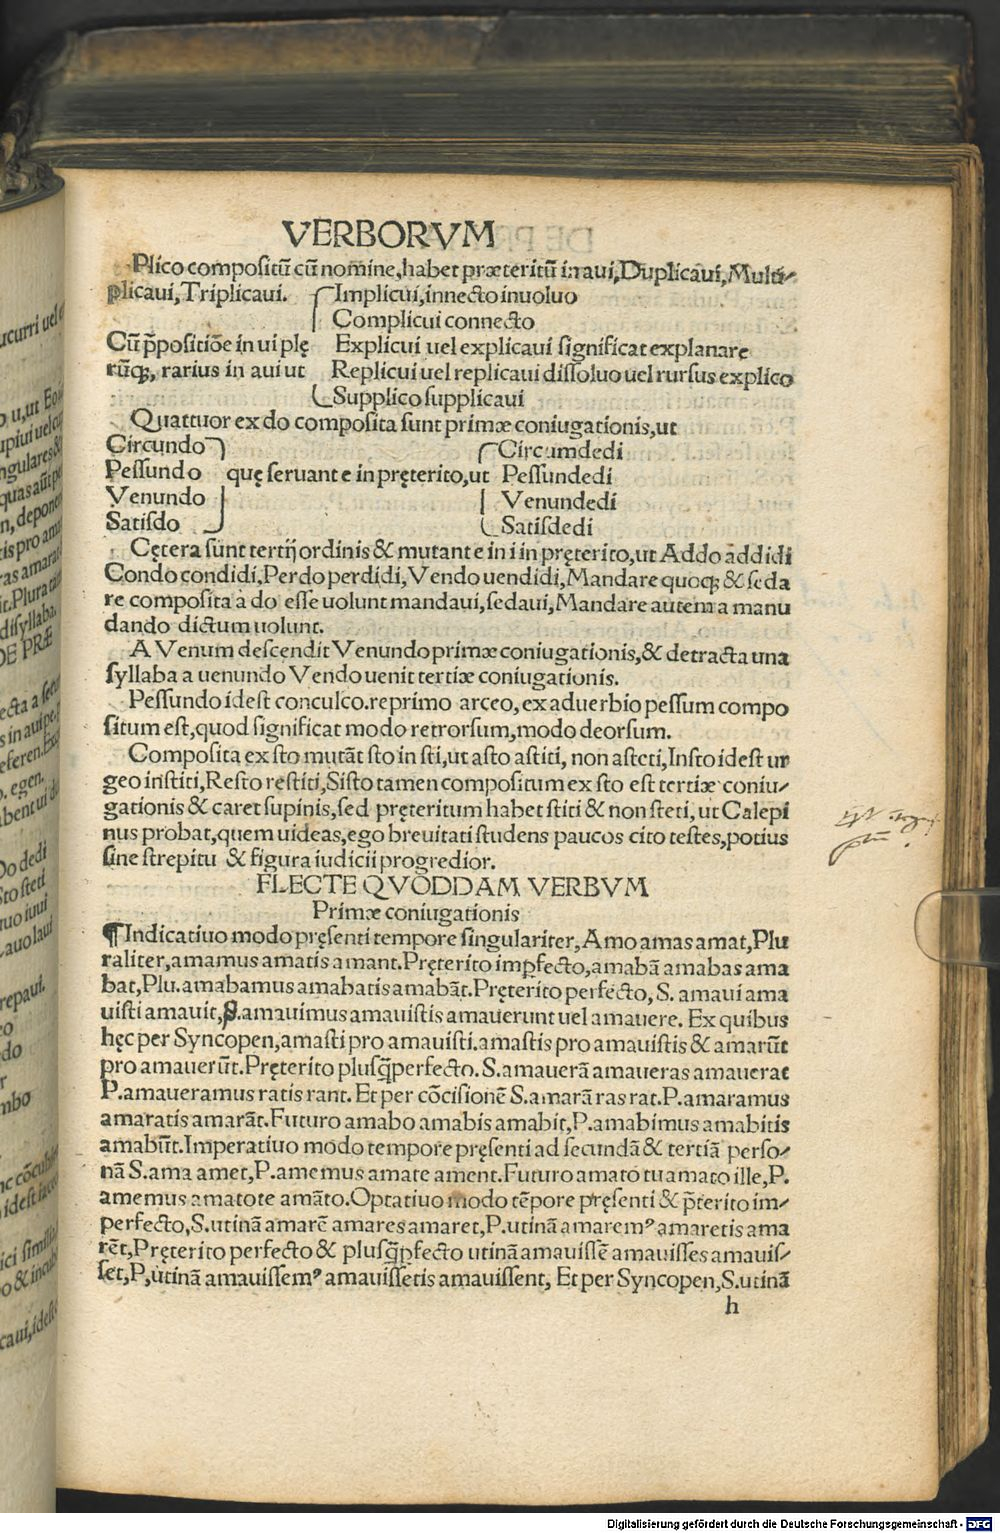 VERBORVM
Plico compositũ cũ nomine, habet præteritũ in aui, Duplicaui, Multi-
plicaui, Triplicaui. Implicui, innecto inuoluo
Complicui connecto
Cũ p̃positiõe in ui plę Explicui uel explicaui significat explanare
rũq;, rarius in aui ut Replicui uel replicaui dissoluo uel rursus explico
Supplico supplicaui
Quattuor ex do composita sunt primæ coniugationis, ut
Circundo Circumdedi
Pessundo quę seruant e in pręterito, ut Pessundedi
Venundo Venundedi
Satisdo Satisdedi
Cętera sunt tertij ordinis & mutant e in i in pręterito, ut Addo addidi
Condo condidi, Perdo perdidi, Vendo uendidi, Mandare quoq; & seda
re composita à do esse uolunt mandaui, sedaui, Mandare autem a manu
dando dictum uolunt.
A Venum descendit Venundo primæ coniugationis, & detracta una
syllaba a uenundo Vendo uenit tertiæ coniugationis.
Pessundo idest conculco. reprimo arceo, ex aduerbio pessum compo
situm est, quod significat modo retrorsum, modo deorsum.
Composita ex sto mutãt sto in sti, ut asto astiti, non asteti, Insto idest ur
geo institi, Resto restiti, Sisto tamen compositum ex sto est tertiæ coniu-
gationis & caret supinis, sed pręteritum habet stiti & non steti, ut Calepi
nus probat, quem uideas, ego breuitati studens paucos cito testes, potius
sine strepitu & figura iudicii progredior.
FLECTE QVODDAM VERBVM
Primæ coniugationis
¶ Indicatiuo modo pręsenti tempore singulariter, Amo amas amat, Plu
raliter, amamus amatis amant. Pręterito imp̱fecto, amabã amabas ama
bat, Plu. amabamus amabatis amabãt. Pręterito perfecto, S. amaui ama
uisti amauit, P. amauimus amauistis amauerunt uel amauere. Ex quibus
hęc per Syncopen, amasti pro amauisti. amastis pro amauistis & amarũt
pro amauerũt. Pręterito plusq̃perfecto. S. amauerã amaueras amauerat
P. amaueramus ratis rant. Et per cõcisionẽ S. amarã ras rat. P. amaramus
amaratis amarãt. Futuro amabo amabis amabit, P. amabimus amabitis
amabũt. Imperatiuo modo tempore pręsenti ad secundã & tertiã perso-
nã S. ama amet, P. amemus amate ament. Futuro amato tu amato ille, P.
amemus amatote amãto. Optatiuo modo tẽpore pręsenti & p̃terito im-
perfecto, S. utinã amarẽ amares amaret, P. utinã amaremꝰ amaretis ama
rẽt, Pręterito perfecto & plusq̃p̱fecto utinã amauissẽ amauisses amauis-
set, P, utinã amauissemꝰ amauissetis amauissent, Et per Syncopen, S. utinã
h
Digitalisierung gefördert durch die Deutsche Forschungsgemeinschaft - DFG